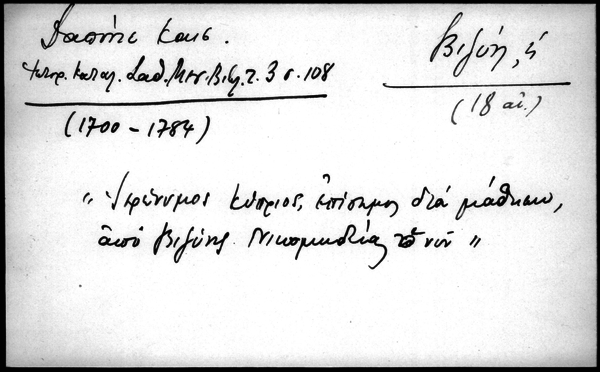 Δαπόντε Καισ.
Ιστορ. Καταλ. Σαθ. Μεσ. Βιβλ. τ. 3 σ. 108
(1700-1784)
Βιζύη, ἡ
(18 αἰ.)
"Ἱερώνυμος Κύπριος, ἐπίσημος διὰ μάθησιν,
ἀπὸ Βιζύης Νικομηδείας τὸ νῦν"